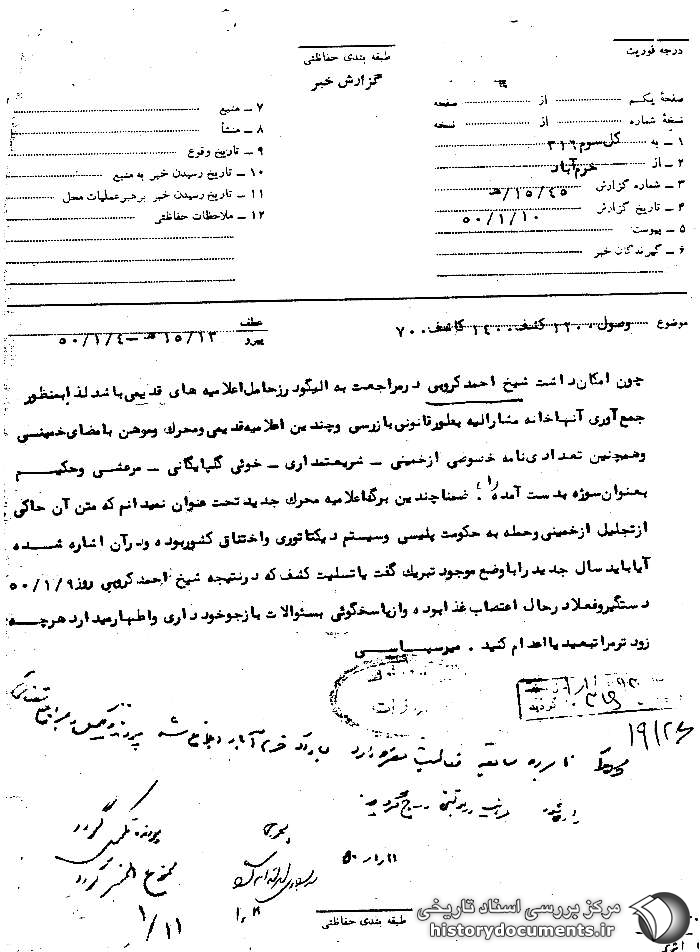 طبقه بندی حفاظتی
گزارش خبر
درجه فوریت
صفحهٔ یکم از صفحه
نسخهٔ شماره از نسخه
۱ ـ به کل سوم ۳۱۶
۲ ـ از خرم‌آباد
۳ ـ شماره گزارش ۱۵/۴۵/هـ
۴ ـ تاریخ گزارش ۵۰/۱/۱۰
۵ ـ پیوست
۶ ـ گیرندگان خبر
۷ ـ منبع
۸ ـ منشأ
۹ ـ تاریخ وقوع
۱۰ ـ تاریخ رسیدن خبر به منبع
۱۱ ـ تاریخ رسیدن خبر برهبر عملیات محل
۱۲ ـ ملاحظات حفاظتی
موضوع وصول ۱۲۰۰ کشف ۱۴۰۰ کاشف ۷۰۰
عطف
پیرو ۱۵/۱۳ هـ ـ ۵۰/۱/۴
چون امکان داشت شیخ احمد کروبی در مراجعت به الیگودرز حامل اعلامیه های قدیمی باشد لذا بمنظور
جمع آوری آنها خانه مشارالیه بطور قانونی بازرسی و چندین اعلامیه قدیمی و محرک و موهن بامضای خمینی
و همچنین تعدادی نامه خصوصی از خمینی ـ شریعتمداری ـ خوئی گلپایگانی ـ مرعشی و حکیم
بعنوان سوژه بدست آمده را، ضمنا چندین برگ اعلامیه محرک جدید تحت عنوان نمیدانم که متن آن حاکی
از تجلیل از خمینی و حمله به حکومت پلیسی و سیستم دیکتاتوری و اختناق کشور بوده و در آن اشاره شده
آیا باید سال جدید را با وضع موجود تبریک گفت یا تسلیت کشف که در نتیجه شیخ احمد کروبی روز ۵۰/۱/۹
دستگیر و فعلا در حال اعتصاب غذا بوده و از پاسخگوئی بسئوالات بازجو خود داری و اظهار میدارد هرچه
زودتر مرا تبعید یا اعدام کنید . میرسپاسی
۱۹/۲۶
نامبرده سابقه فعالیت مضره دارد
پرونده تکمیل گردد
۵۰/۱/۱۱
۱/۱۱
طبقه بندی حفاظتی
مرکز بررسی اسناد تاریخی
historydocuments.ir